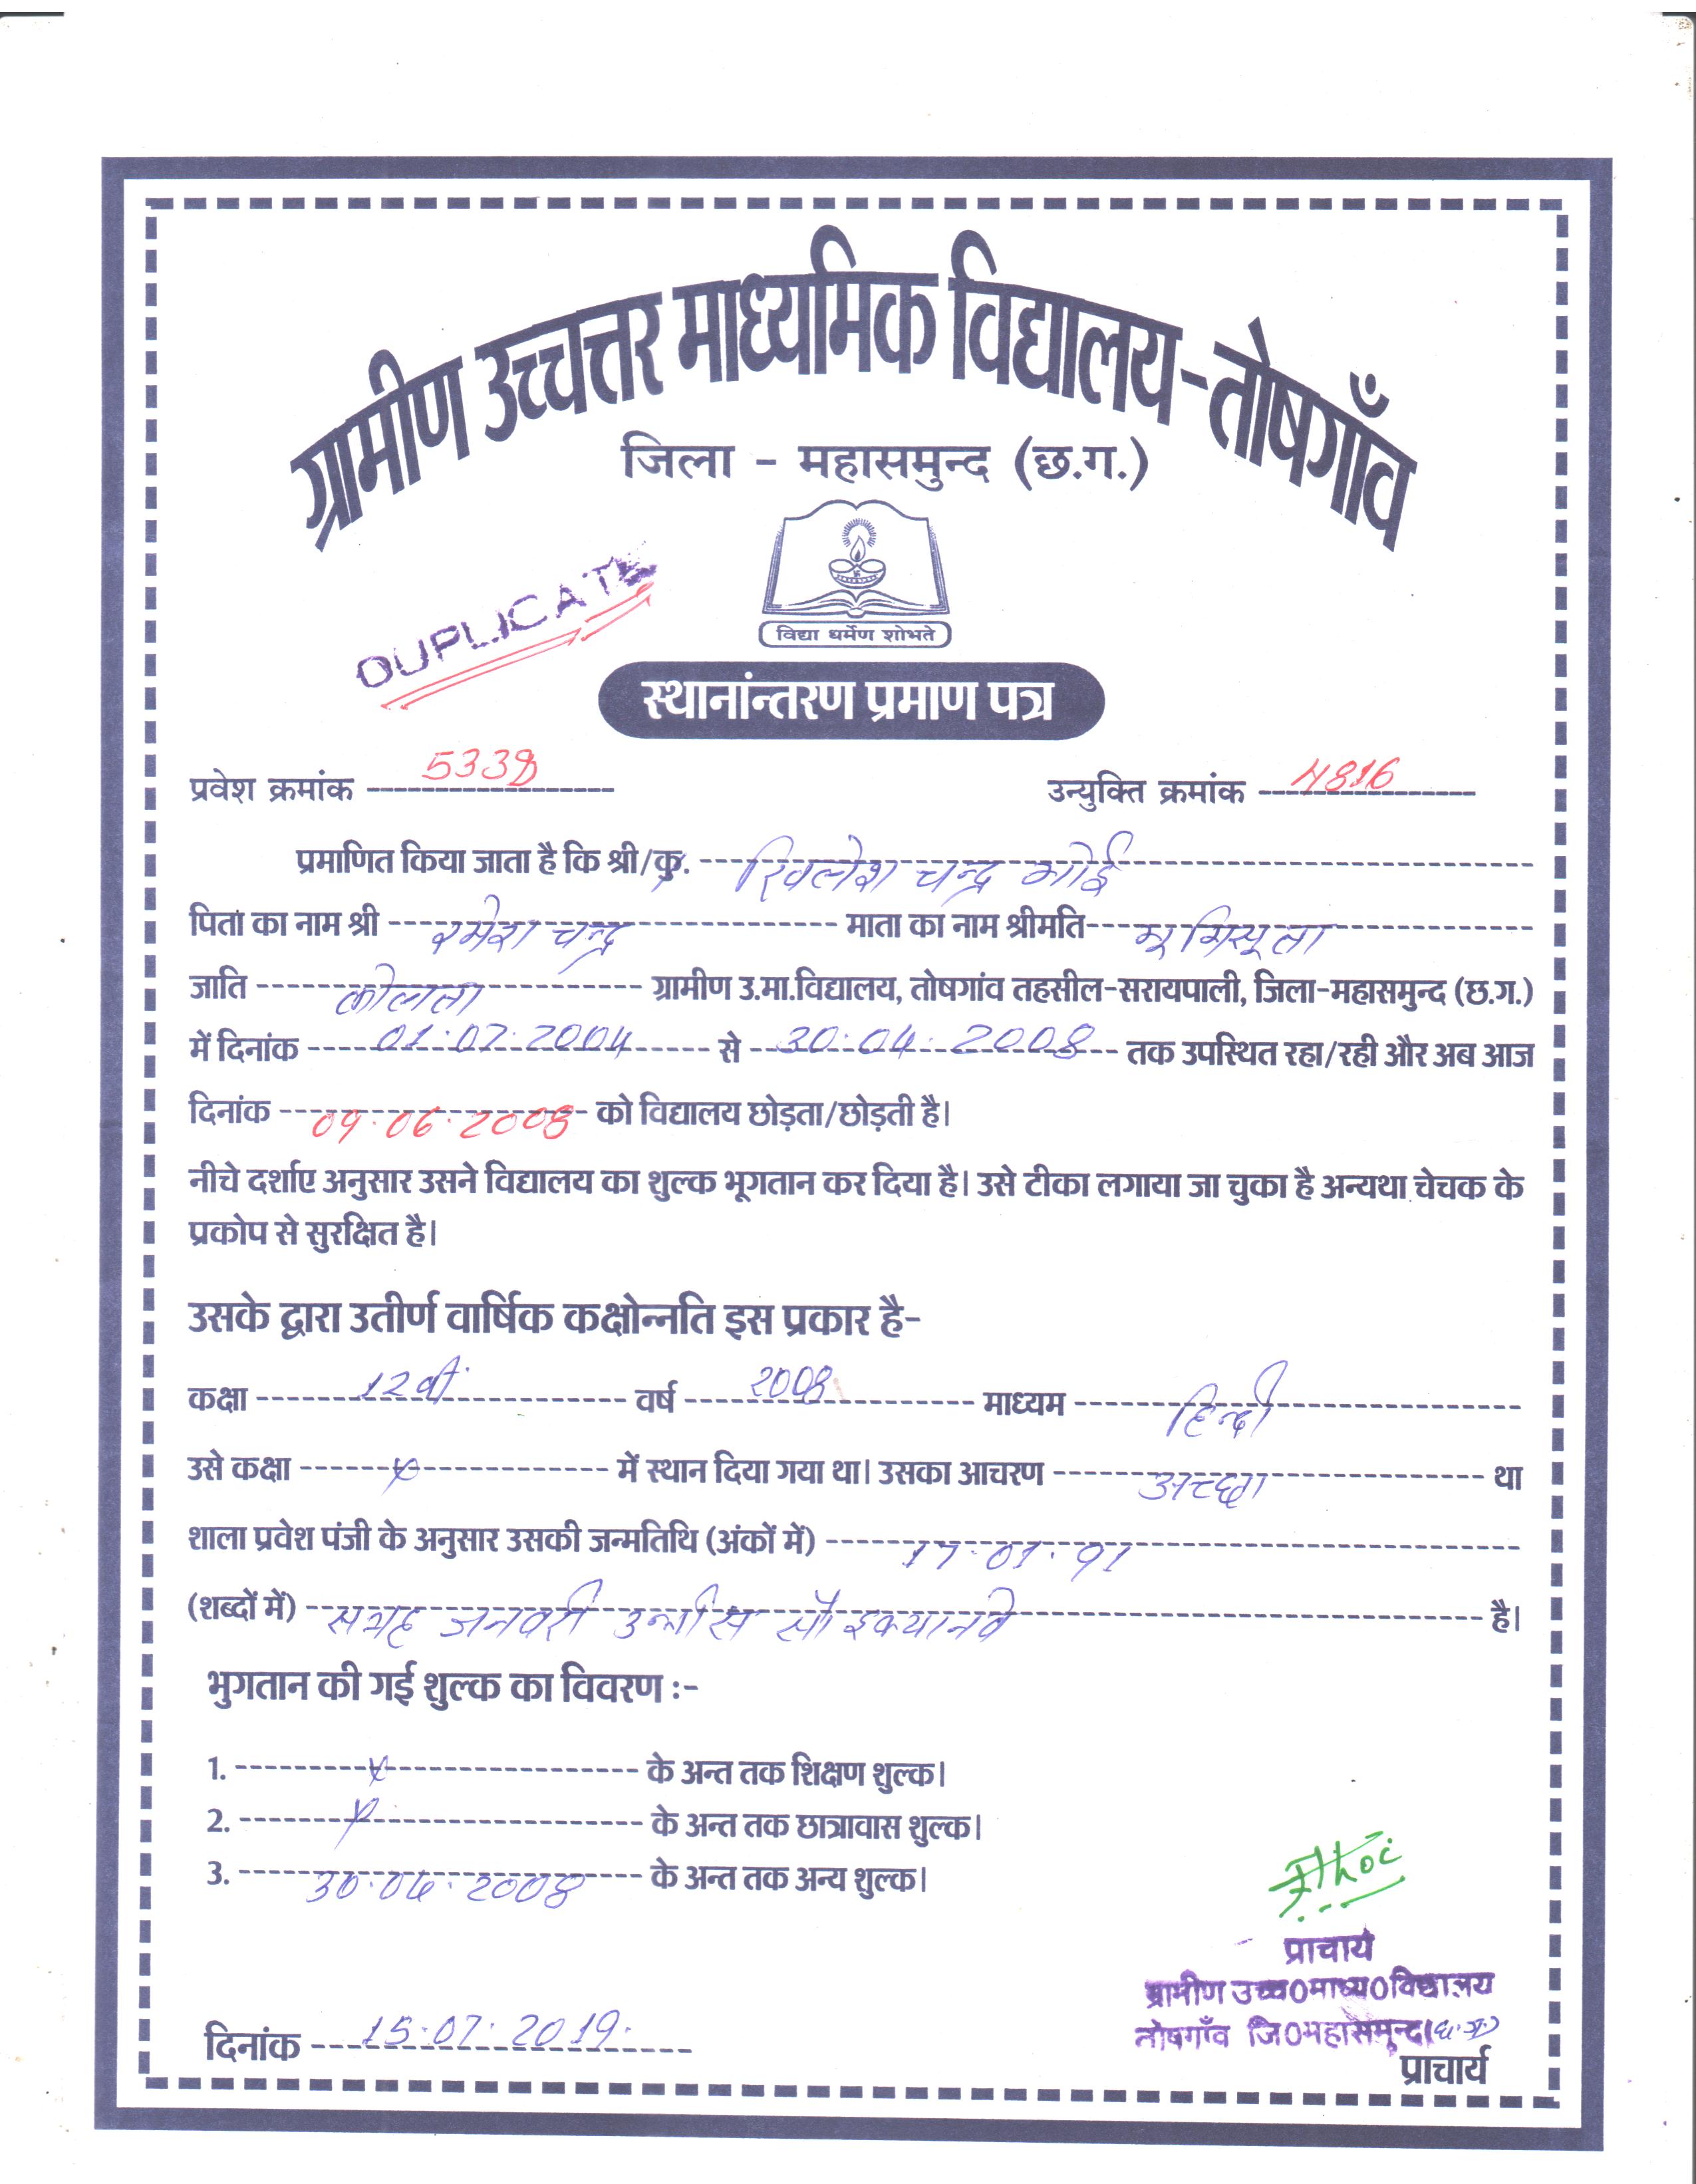 ग्रामीण उच्चत्तर माध्यमिक विद्यालय-तोषगाँव
जिला - महासमुन्द (छ.ग.)
विद्या धर्मेण शोभते
DUPLICATE
स्थानांन्तरण प्रमाण पत्र
प्रवेश क्रमांक 5338 उन्युक्ति क्रमांक 4816
प्रमाणित किया जाता है कि श्री/कु. खिलेश चन्द्र भोई
पिता का नाम श्री रमेश चन्द्र माता का नाम श्रीमति
जाति कोलता ग्रामीण उ.मा.विद्यालय, तोषगांव तहसील-सरायपाली, जिला-महासमुन्द (छ.ग.)
में दिनांक 01.07.2004 से 30.04.2008 तक उपस्थित रहा/रही और अब आज
दिनांक 09.06.2008 को विद्यालय छोड़ता/छोड़ती है।
नीचे दर्शाए अनुसार उसने विद्यालय का शुल्क भूगतान कर दिया है। उसे टीका लगाया जा चुका है अन्यथा चेचक के
प्रकोप से सुरक्षित है।
उसके द्वारा उतीर्ण वार्षिक कक्षोन्नति इस प्रकार है-
कक्षा 12वीं वर्ष 2008 माध्यम हिन्दी
उसे कक्षा x में स्थान दिया गया था। उसका आचरण अच्छा था
शाला प्रवेश पंजी के अनुसार उसकी जन्मतिथि (अंकों में) 17.01.91
(शब्दों में) सत्रह जनवरी उन्नीस सौ इक्यानवे है।
भुगतान की गई शुल्क का विवरण :-
1. x के अन्त तक शिक्षण शुल्क।
2. x के अन्त तक छात्रावास शुल्क।
3. 30.04.2008 के अन्त तक अन्य शुल्क।
प्राचार्य
ग्रामीण उच्च०माध्य०विद्यालय
तोषगाँव जि०महासमुन्द (छ.ग.)
दिनांक 15.07.2019.
प्राचार्य